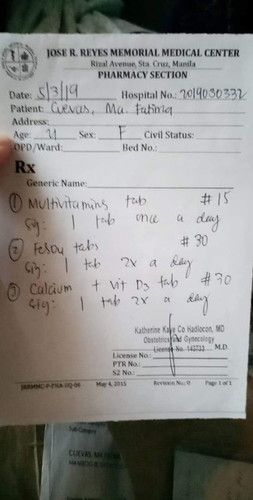 JOSE R. REYES MEMORIAL MEDICAL CENTER
Rizal Avenue, Sta. Cruz, Manila
PHARMACY SECTION
Date: 5/3/19 Hospital No.: 2019030332
Patient: Cuevas, Ma. Fatima
Address:
Age: Sex: F Civil Status:
OPD/Ward: Bed No.:
Rx
Generic Name:
① Multivitamins tab #15
Sig: 1 tab once a day
② Fesou tabs #30
Sig: 1 tab 2x a day
③ Calcium + Vit D3 tab #30
Sig: 1 tab 2x a day
Katherine Kaye Co Hadlocon, MD
Obstetrics and Gynecology
License No. 143723 M.D.
License No.:
PTR No.:
S2 No.:
May 4, 2015 Revision No.: 0 Page 1 of 1
CUEVAS, MA